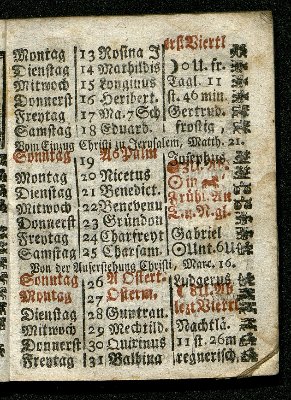 erst Viertl
Montag 13 Rosina J
Dienstag 14 Mathildis ☽ 0 U. fr.
Mitwoch 15 Longinus Tagl. 11
Donnerst 16 Heribert. st. 46 min.
Freytag 17 Ma. 7 Sch Gertrud.
Samstag 18 Eduard. frostig,
Vom Einzug Christi zu Jerusalem, Matth. 21.
Sonntag 19 A Palm Josephus.
Montag 20 Nicetus
Dienstag 21 Benedict. ☉ in
Mitwoch 22 Benevenu Frühl. An
Donnerst 23 Gründon T. u. N. gl.
Freytag 24 Charfreyt Gabriel
Samstag 25 Charsam. ☉ Unt. 6 U
Von der Auferstehung Christi, Marc. 16.
Sonntag 26 A Ostert. Ludgerus
Montag 27 Osterm.
Dienstag 28 Guntran. letzt Viertl
Mitwoch 29 Mechtild. Nachtlä.
Donnerst 30 Quirinus 11 st. 26 m
Freytag 31 Balbina regnerisch,